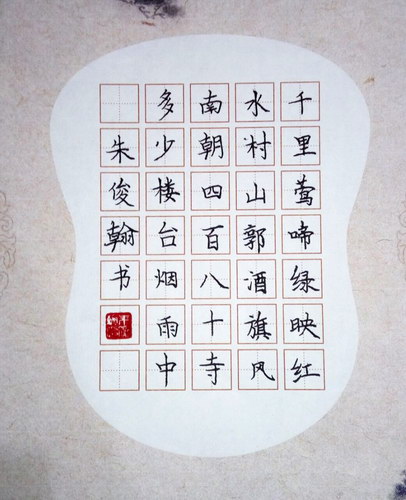 千里莺啼绿映红
水村山郭酒旗风
南朝四百八十寺
多少楼台烟雨中
朱俊翰书